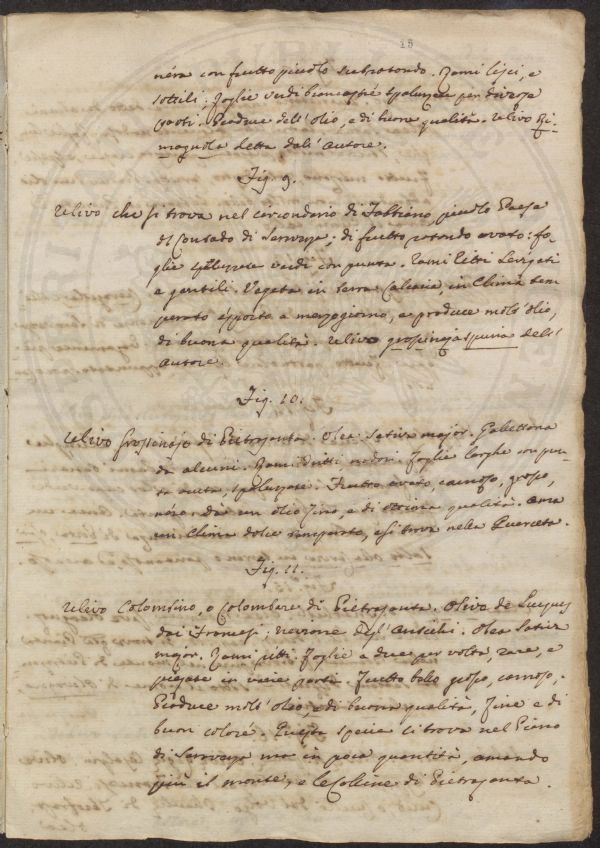 15
néra con frutto piccolo subrotondo. Rami lisci, e
sottili; foglie verdi biancastre spalmate per diverse
parti. Produce dell'olio, e di buona qualità. Ulivo Ri-
magnola detta dall'autore.
Fig. 9.
Ulivo che si trova nel circondario di Fabbiano, piccolo Paese
del Contado di Seravezza; di frutto rotondo ovato: fo-
glie verdi con punta. Rami retti levigati
e gentili. Vegeta in terra Calcarea, in Clima tem
perato esposto a mezzogiorno, e produce molt'olio,
di buona qualità. Ulivo grossinaja spuria dell'
autore.
Fig. 10.
Ulivo Grossinajo di Pietrasanta. Olea sativa major.
da alcuni. Rami dritti nodosi. Foglie larghe con pun-
ta acuta, Frutto ovato, carnoso, grosso,
nero: da un olio fino, e di ottima qualità. ama
un Clima dolce temperato, e si trova nella Querceta.
Fig. 11.
Ulivo Colombino, o Colombare di Pietrasanta. Olive de Lucques
dai Francesi: degl'Antichi. Olea sativa
major. Rami fitti. Foglie a due per volta, rare, e
piegate in varie parti. Frutto bello grosso, carnoso.
Produce molt'oleo, e di buona qualità, fine e di
buon coloré. Questa specie si trova nel Piano
di Seravezza ma in poca quantità, amando
più il monte, e le Colline di Pietrasanta.